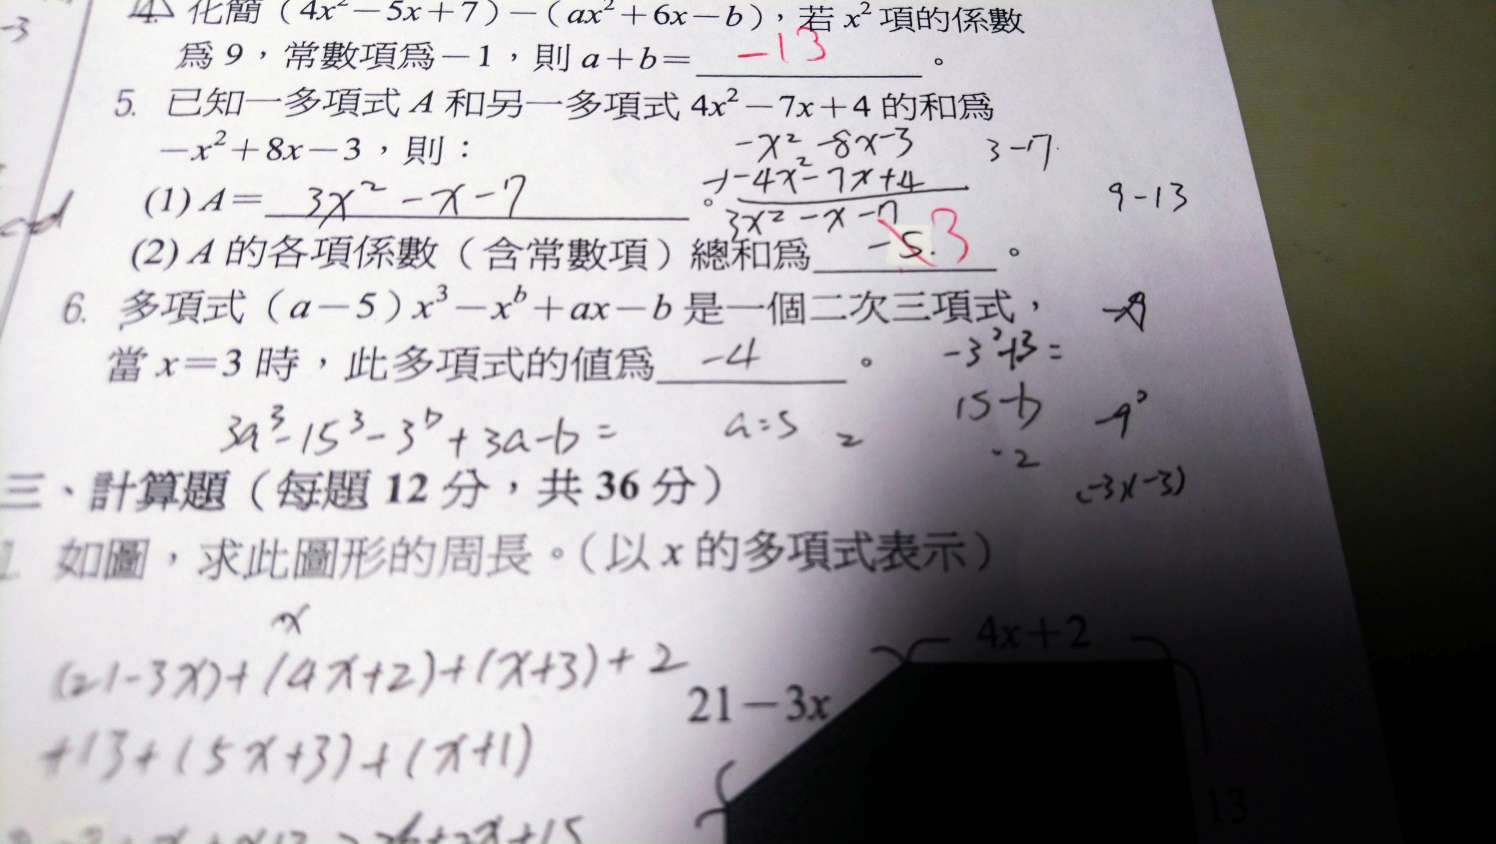 -3
4. 化簡（4x²－5x＋7）－（ax²＋6x－b），若 x² 項的係數
為 9，常數項為－1，則 a＋b＝ -13 。
5. 已知一多項式 A 和另一多項式 4x²－7x＋4 的和為
－x²＋8x－3，則：
-x² -8x-3
3-7
+-4x²-7x+4
3x² - x -7
9-13
(1) A＝ 3x² - x - 7 。
cd
(2) A 的各項係數（含常數項）總和為 -5. 3 。
6. 多項式（a－5）x³－xᵇ＋ax－b 是一個二次三項式，
當 x＝3 時，此多項式的值為 -4 。
-3²+3=
3a³-15³-3ᵇ+3a-b=
a=5
2
15-b
-2
-9
(-3x-3)
三、計算題（每題 12 分，共 36 分）
1. 如圖，求此圖形的周長。（以 x 的多項式表示）
x
(21-3x)+(4x+2)+(x+3)+2
+13+(5x+3)+(x+1)
4x＋2
21－3x
13